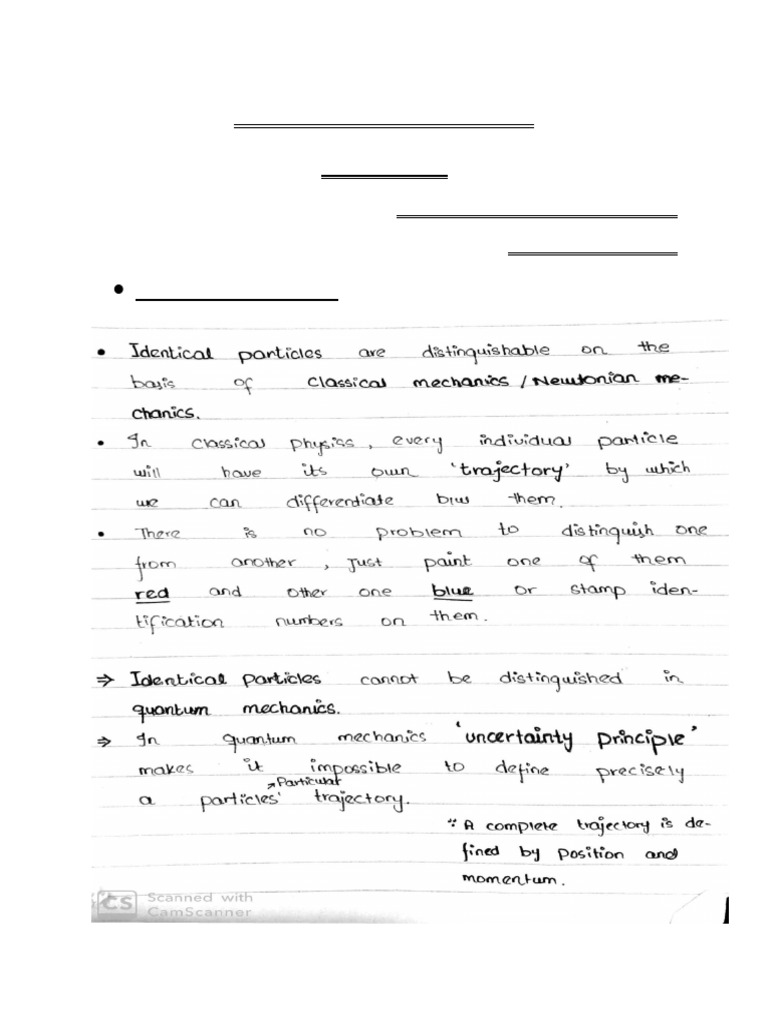 • Identical particles are distinguishable on the
basis of classical mechanics / Newtonian me-
chanics.
• In classical physics, every individual particle
will have its own 'trajectory' by which
we can differentiate b/w them.
• There is no problem to distinguish one
from another, just paint one of them
red and other one blue or stamp iden-
tification numbers on them.
⇒ Identical particles cannot be distinguished in
quantum mechanics.
⇒ In quantum mechanics 'uncertainty principle'
makes it impossible to define precisely
↗ Particular
a particles' trajectory.
∵ A complete trajectory is de-
fined by position and
momentum.
CS Scanned with
CamScanner